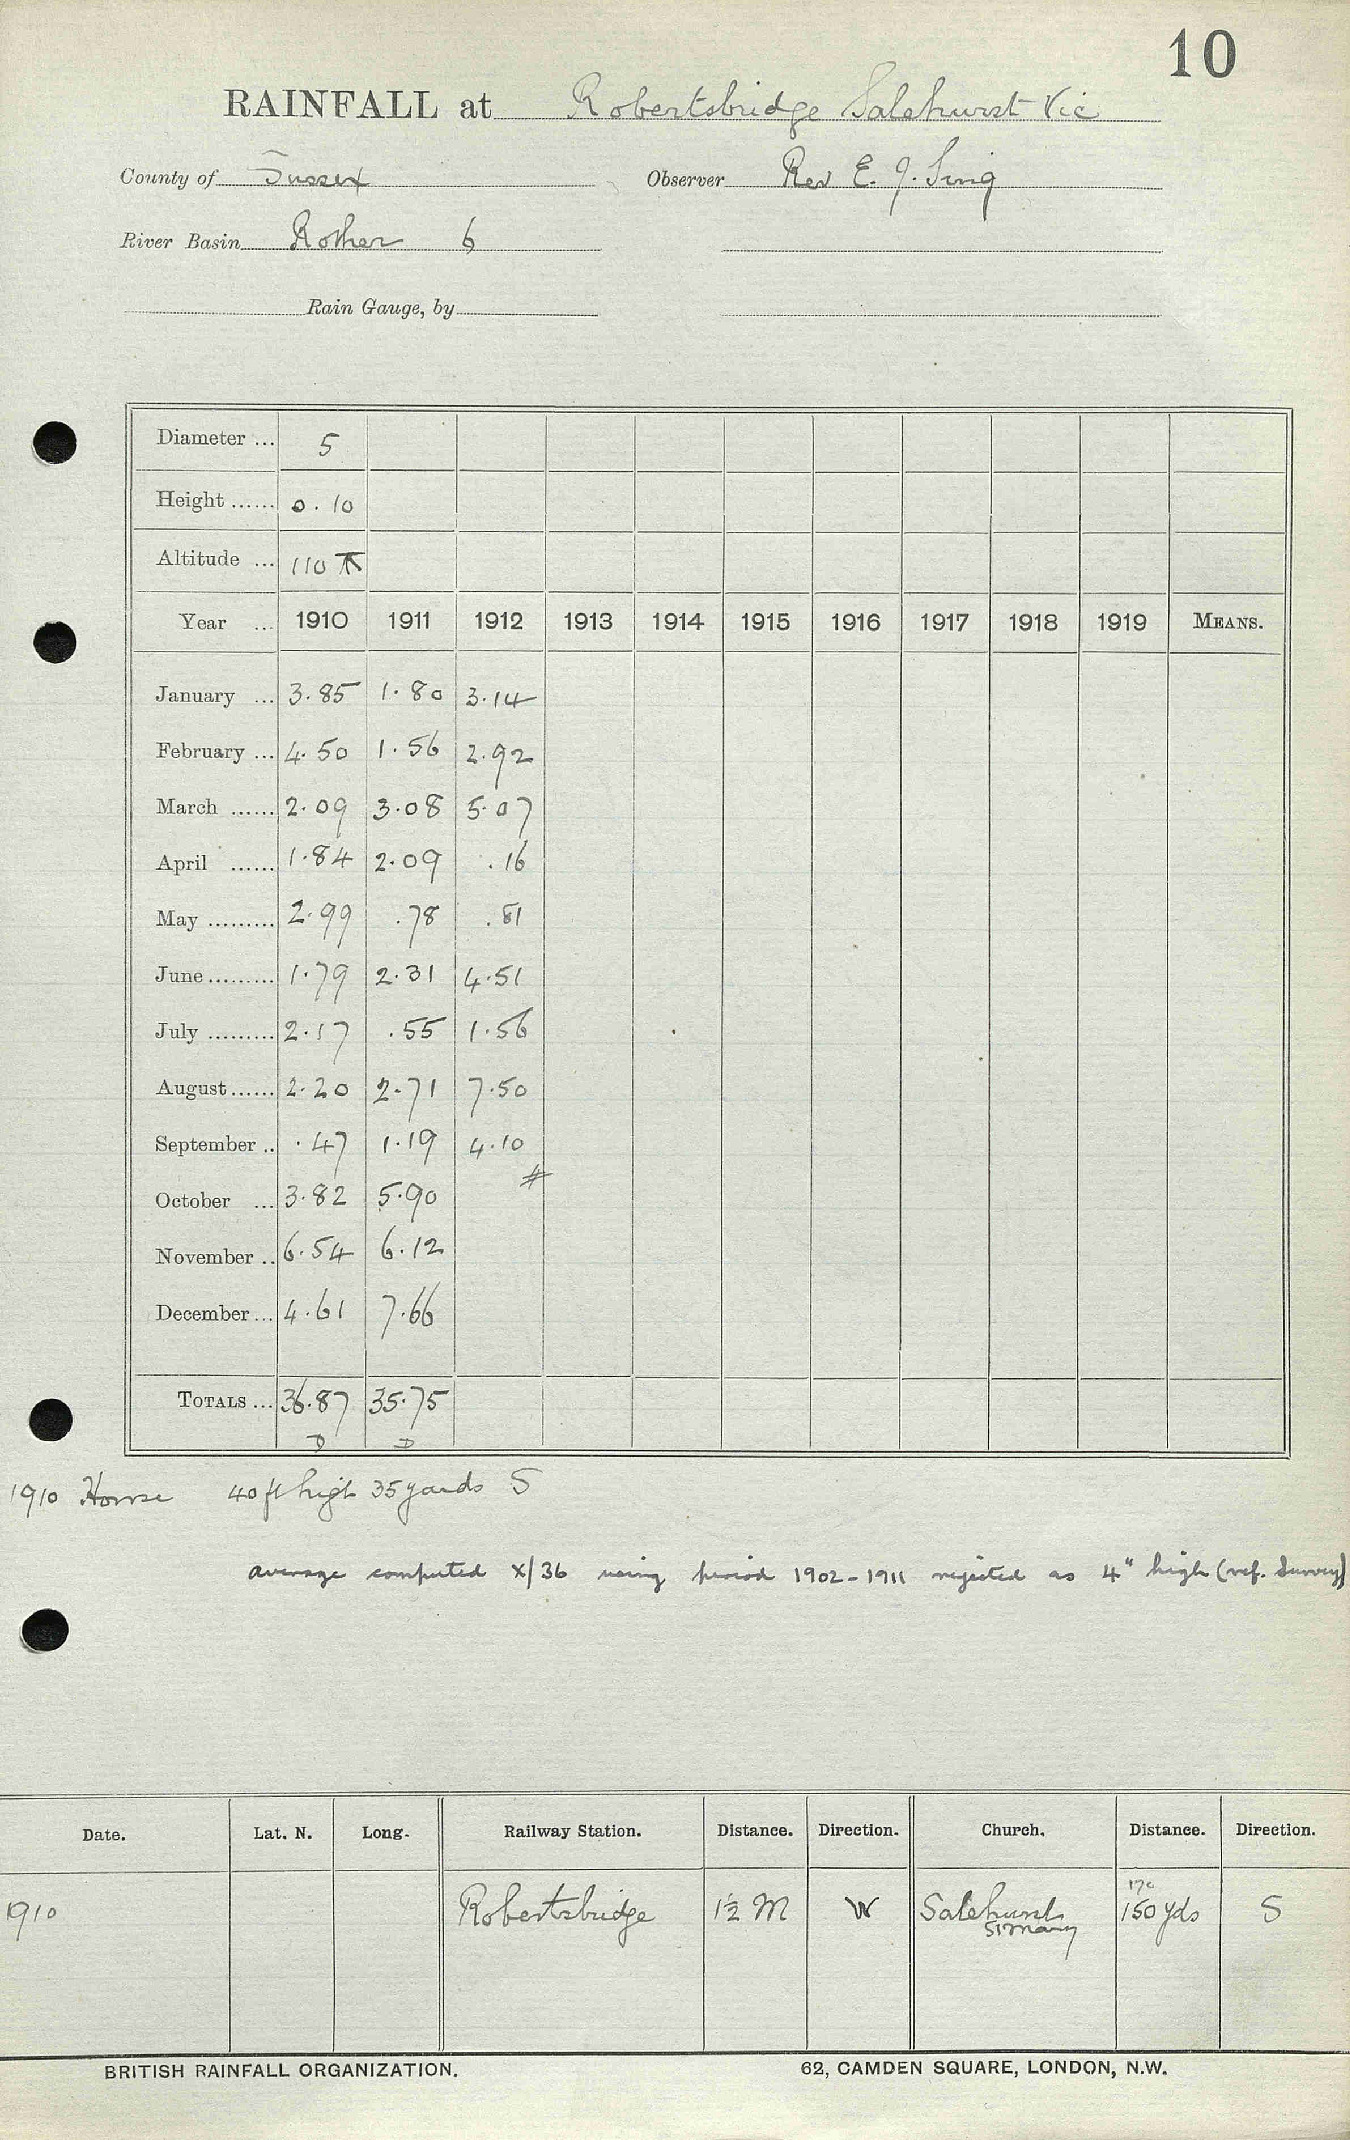 10
RAINFALL at Robertsbridge Salehurst Vic
County of Sussex Observer Rev E. J. Sing
River Basin Rother 6
Rain Gauge, by
Diameter ... 5
Height ...... 0.10
Altitude ... 110
Year ... 1910 1911 1912 1913 1914 1915 1916 1917 1918 1919 MEANS.
January ... 3.85 1.80 3.14
February ... 4.50 1.56 2.92
March ...... 2.09 3.08 5.07
April ...... 1.84 2.09 .16
May ......... 2.99 .78 .81
June ......... 1.79 2.31 4.51
July ......... 2.17 .55 1.56
August ...... 2.20 2.71 7.50
September .. .47 1.19 4.10
#
October ... 3.82 5.90
November .. 6.54 6.12
December ... 4.61 7.66
TOTALS ... 36.87 35.75
D D
1910 House 40 ft high 35 yards S
average computed X/36 using period 1902-1911 rejected as 4" high (ref. Survey)
Date. Lat. N. Long. Railway Station. Distance. Direction. Church. Distance. Direction.
170
1910 Robertsbridge 1½ M W Salehurst 150 yds S
St Mary
BRITISH RAINFALL ORGANIZATION. 62, CAMDEN SQUARE, LONDON, N.W.